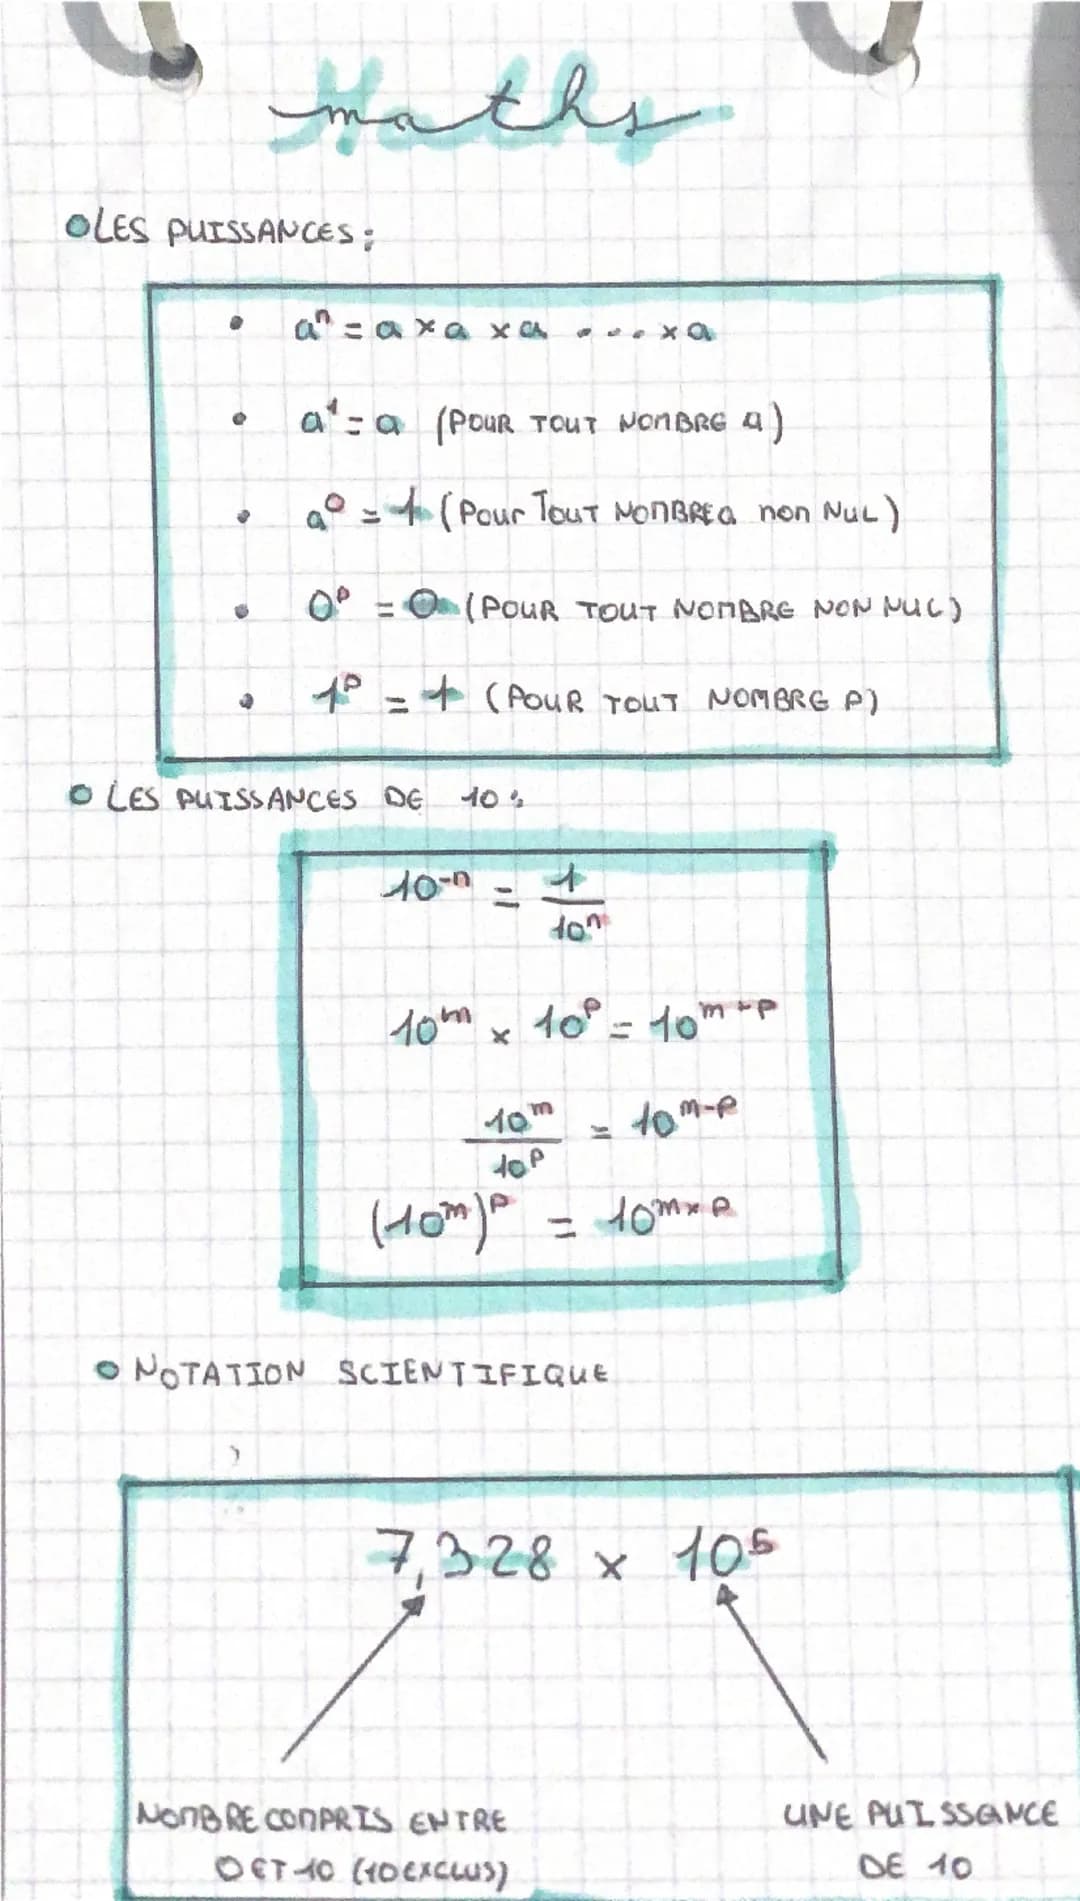 maths
LES PUISSANCES :
• aⁿ = a × a × a ... × a
• a¹ = a (POUR TOUT NOMBRE a)
• a⁰ = 1 (Pour Tout NOMBRE a non NUL)
• 0ᵖ = 0 (POUR TOUT NOMBRE NON NUL)
• 1ᵖ = 1 (POUR TOUT NOMBRE P)
LES PUISSANCES DE 10 :
10⁻ⁿ = 1/10ⁿ
10ᵐ × 10ᵖ = 10ᵐ⁺ᵖ
10ᵐ/10ᵖ = 10ᵐ⁻ᵖ
(10ᵐ)ᵖ = 10ᵐˣᵖ
NOTATION SCIENTIFIQUE
7,328 × 10⁵
NOMBRE COMPRIS ENTRE
0 ET 10 (10 EXCLUS)
UNE PUISSANCE
DE 10